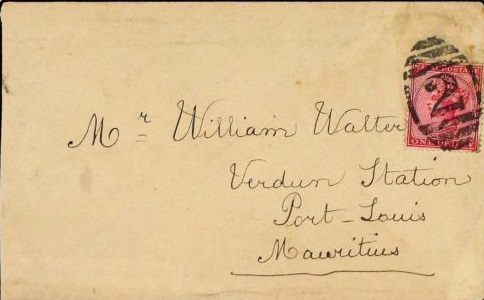 Mr William Walter
Verdun Station
Port-Louis
Mauritius
POSTA
2
ONE